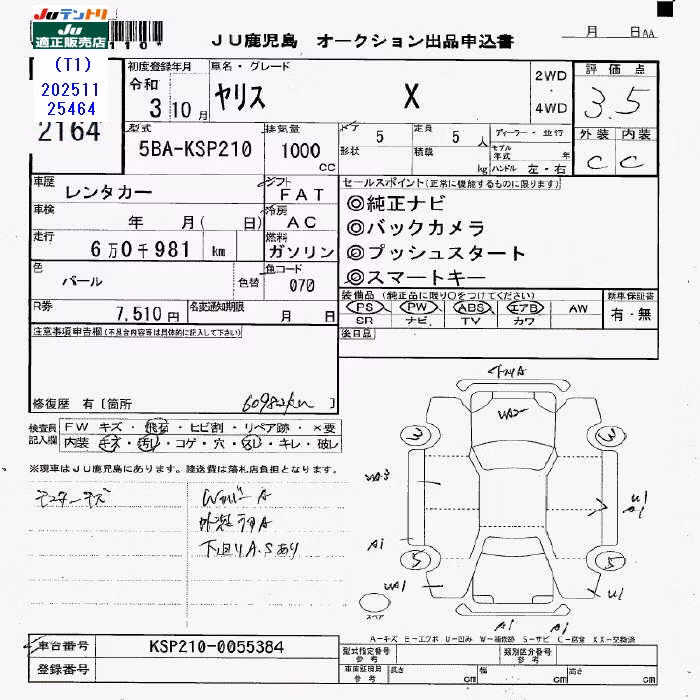 Juテントリ
JU
適正販売店
JU鹿児島 オークション出品申込書
月 日AA
(T1)
202511
25464
2164
初度登録年月
令和
3 10月
車名・グレード
ヤリス X
2WD
・
4WD
評価点
3.5
外装 内装
C C
型式
5BA-KSP210
排気量
1000
CC
ドア 5
形状
定員 5 人
積載 kg
ディーラー・並行
モデル年式 年
ハンドル 左・右
車歴
レンタカー
シフト
FAT
車検
年 月( 日)
冷房
AC
走行
6万0千981 km
燃料
ガソリン
色
パール
色替
色コード
070
R券
7,510円
名変通知期限
月 日
セールスポイント(正常に機能するものに限ります)
◎純正ナビ
◎バックカメラ
◎プッシュスタート
◎スマートキー
装備品 (純正品に限り○をつけてください)
PS PW ABS エアB AW
SR ナビ TV カワ
新車保証書
有・無
後日品
注意事項申告欄(不具合内容等は具体的に記入して下さい)
修復歴 有[箇所
60982km
検査員
記入欄
FW キズ・飛石・ヒビ割・リペア跡・×要
内装 キズ・汚れ・コゲ・穴・・キレ・破レ
※現車はJU鹿児島にあります。陸送費は落札店負担となります。
モニターキズ
A
外装ラタA
下回りA.Sあり
WA2
3
3
WA3
U1
A1
A1
5
5
WA1
U1
A1 A1
スペア
A-キズ E-エクボ U-凹み W-補修跡 S-サビ C-腐食 XX-交換済
車台番号
KSP210-0055384
登録番号
型式指定番号
参考
類別区分番号
参考
車庫証明用
参考
長さ cm
幅 cm
高さ cm